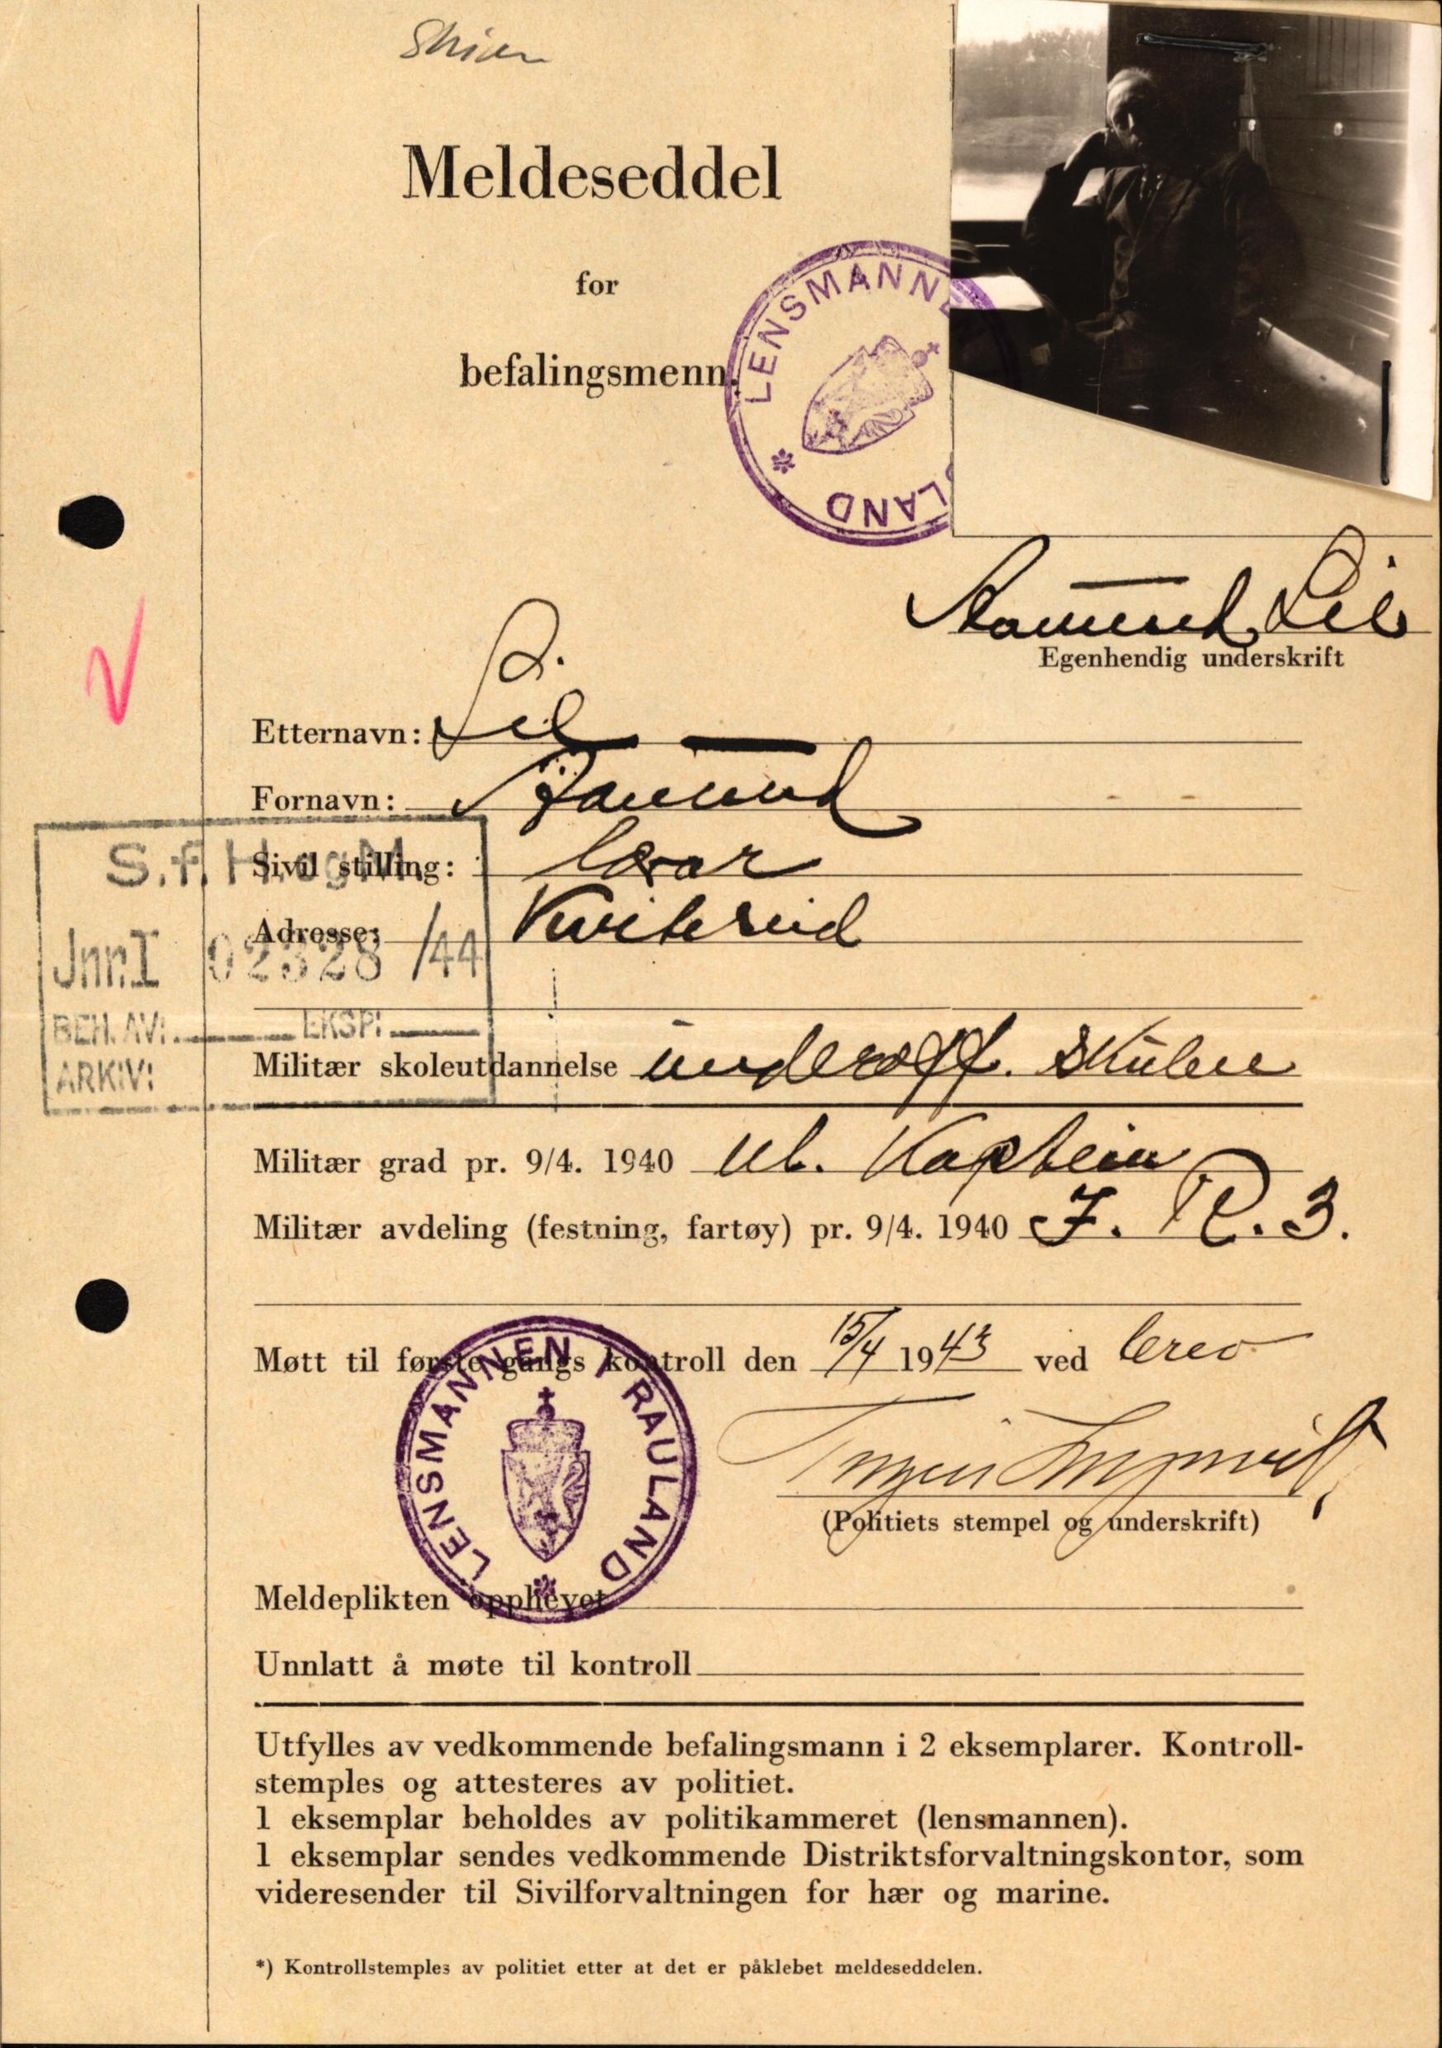 Skien
Meldeseddel
for
befalingsmenn.
LENSMANNEN I RAULAND
Aamund Lil
Egenhendig underskrift
Etternavn: Lil
Fornavn: Aamund
Sivil stilling: lærar
Adresse: Kviteseid
S.f.H.ogM.
Jnr.I 02328/44
BEH. AV: EKSP:
ARKIV:
Militær skoleutdannelse underoff. skulen
Militær grad pr. 9/4. 1940 ub. Kaptein
Militær avdeling (festning, fartøy) pr. 9/4. 1940 I. R. 3.
Møtt til første gangs kontroll den 15/4 1943 ved brev
LENSMANNEN I RAULAND
(Politiets stempel og underskrift)
Meldeplikten opphevet
Unnlatt å møte til kontroll
Utfylles av vedkommende befalingsmann i 2 eksemplarer. Kontroll-
stemples og attesteres av politiet.
1 eksemplar beholdes av politikammeret (lensmannen).
1 eksemplar sendes vedkommende Distriktsforvaltningskontor, som
videresender til Sivilforvaltningen for hær og marine.
*) Kontrollstemples av politiet etter at det er påklebet meldeseddelen.